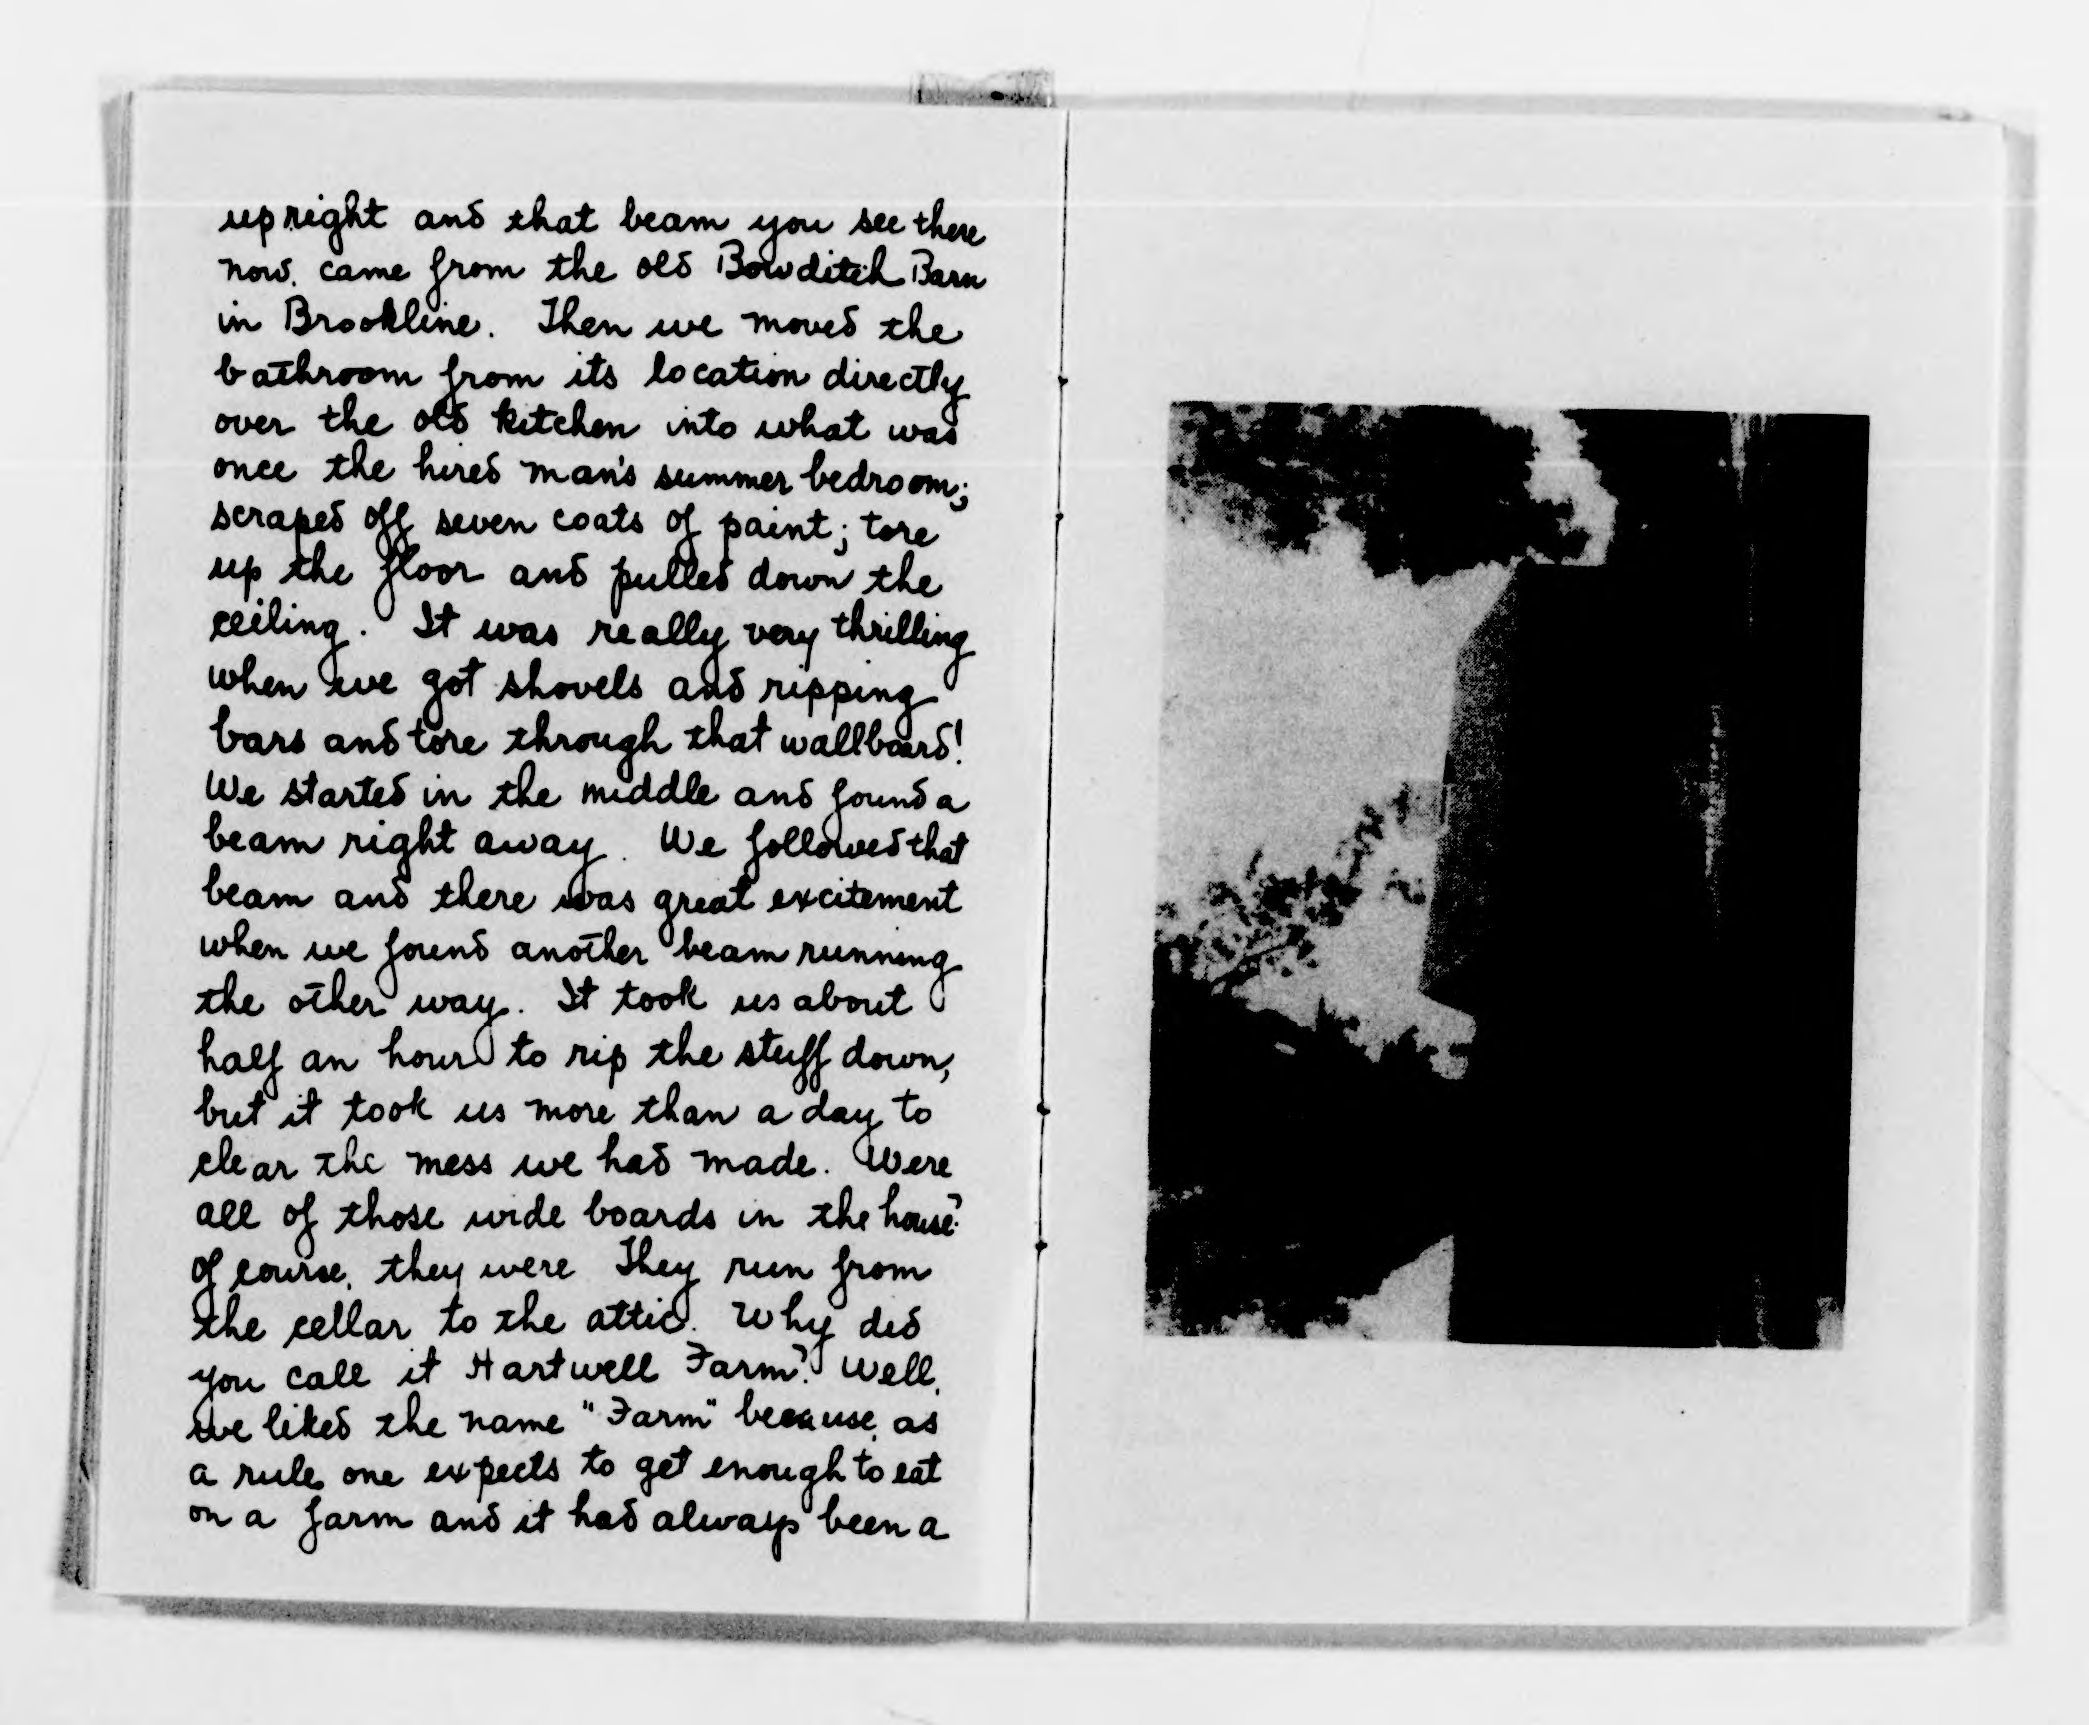 upright and that beam you see there
now, came from the old Bowditch Barn
in Brookline. Then we moved the
bathroom from its location directly
over the old kitchen into what was
once the hired man's summer bedroom;
scraped off seven coats of paint; tore
up the floor and pulled down the
ceiling. It was really very thrilling
when we got shovels and ripping
bars and tore through that wallboard!
We started in the middle and found a
beam right away. We followed that
beam and there was great excitement
when we found another beam running
the other way. It took us about
half an hour to rip the stuff down,
but it took us more than a day to
clear the mess we had made. Were
all of those wide boards in the house?
Of course, they were They run from
the cellar to the attic. Why did
you call it Hartwell Farm? Well,
we liked the name "Farm" because, as
a rule, one expects to get enough to eat
on a farm and it had always been a